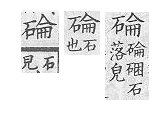 碖
碖硱石
落皃
碖
石
也
碖
石
見